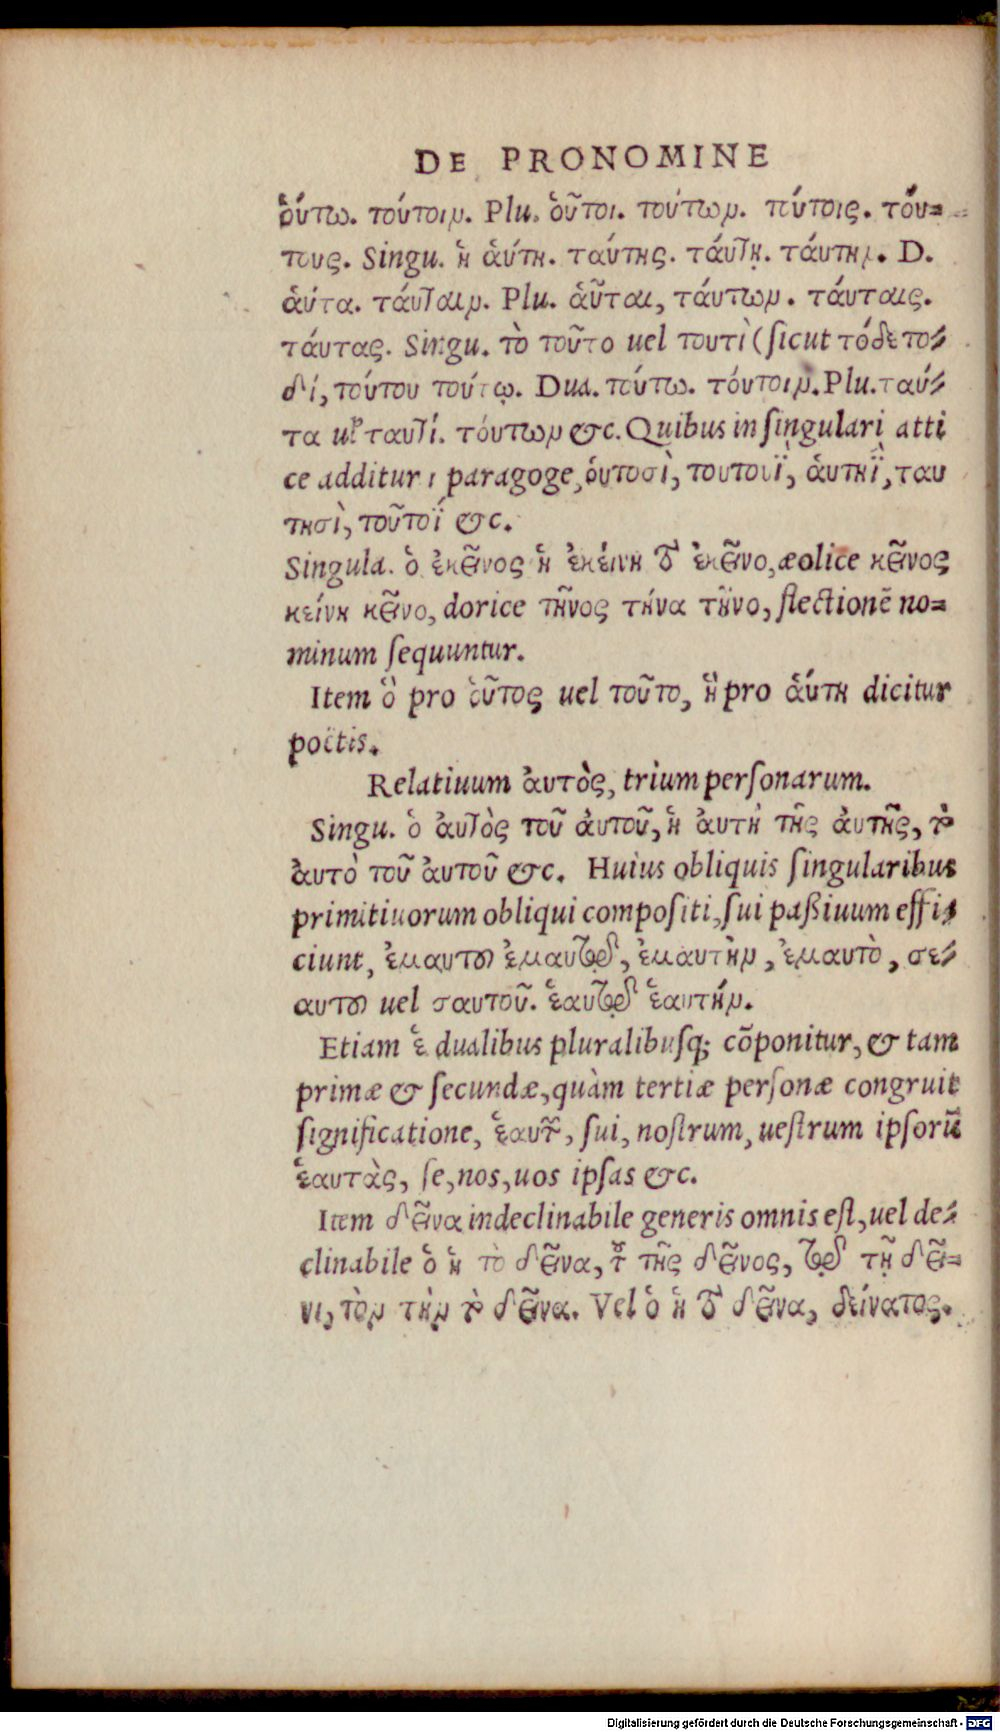 DE PRONOMINE
ὁύτω. τούτοιν. Plu. ὁῦτοι. τούτων. τύτοις. τόυ=
τυς. Singu. ἡ ἁύτη. ταύτης. τάυτῃ. τάυτην. D.
ἁύτα. τάυταιν. Plu. ἁῦται, τάυτων. τάυταις.
τάυτας. Singu. τὸ τοῦτο uel τουτὶ (ſicut τόδε το⸗
δί, τούτου τούτῳ. Dua. τύτω. τόυτοιν. Plu. ταύ⸗
τα uel ταυτί. τόυτων &c. Quibus in ſingulari atti
ce additur ι paragoge, ὁυτοσὶ, τουτουϊ̈, ἁυτηϊ̈, ταυ
τησὶ, τοῦτοϊ̈ &c.
Singula. ὁ ἐκεῖνος ἡ ἐκείνη τὸ ἐκεῖνο, æolice κεῖνος
κείνη κεῖνο, dorice τῆνος τήνα τῆνο, flectionē no=
minum ſequuntur.
Item ὃ pro ὁῦτος uel τοῦτο, ἣ pro ἁύτη dicitur
poëtis.
Relatiuum ἀυτὸς, trium perſonarum.
Singu. ὁ ἀυτὸς τοῦ ἀυτοῦ, ἡ ἀυτὴ τῆς ἀυτῆς, τὸ
ἀυτὸ τοῦ ἀυτοῦ &c. Huius obliquis ſingularibus
primitiuorum obliqui compoſiti, ſui paßiuum effi⸗
ciunt, ἐμαυτοῦ ἐμαυτῷ, ἐμαυτὴν, ἐμαυτὸ, σε⸗
αυτοῦ uel σαυτοῦ. ἑαυτῷ ἑαυτήν.
Etiam ἑ dualibus pluralibusq; cōponitur, & tam
primæ & ſecundæ, quàm tertiæ perſonæ congruit
ſignificatione, ἑαυτῶν, ſui, noſtrum, ueſtrum ipſorū
ἑαυτὰς, ſe, nos, uos ipſas &c.
Item δεῖνα indeclinabile generis omnis eſt, uel de⸗
clinabile ὁ ἡ τὸ δεῖνα, τοῦ τῆς δεῖνος, τῷ τῇ δεῖ=
νι, τὸν τὴν τὸ δεῖνα. Vel ὁ ἡ τὸ δεῖνα, δείνατος.
Digitalisierung gefördert durch die Deutsche Forschungsgemeinschaft - DFG